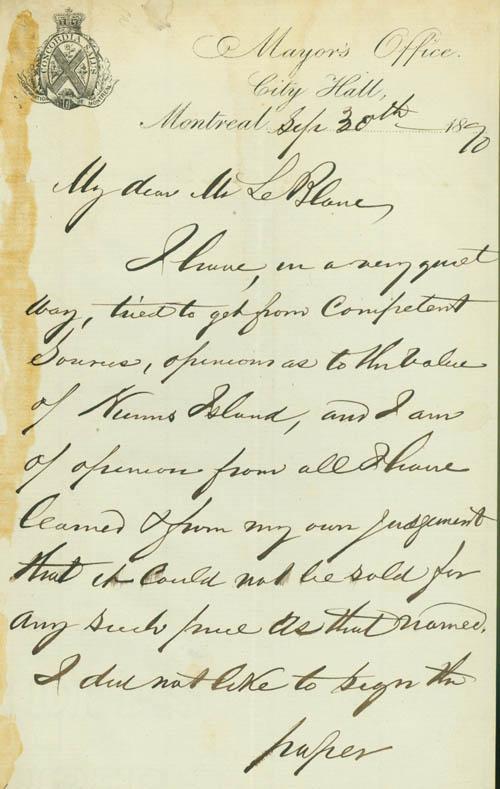 CONCORDIA SALUS
Mayor's Office.
City Hall,
Montreal, Sep 30th 1890
My dear Mr Le Blanc,
I have, in a very quiet
way, tried to get from Competent
Sources, opinions as to the value
of Nuns Island, and I am
of opinion from all I have
learned & from my own judgement
that it could not be sold for
any such price as that named.
I did not like to sign the
paper